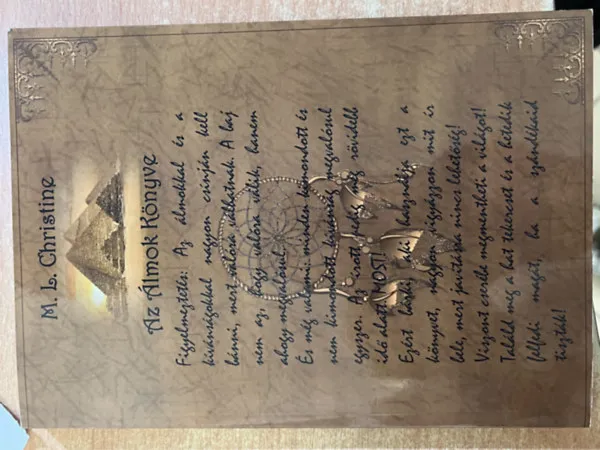 M. L. Christine
Az Álmok Könyve
Figyelmeztetés: Az álmokkal és a
kívánságokkal nagyon csínján kell
bánni, mert valóra válhatnak. A baj
nem az, hogy valóra válik, hanem
ahogy megvalósul!
És még valami: minden kimondott és
nem kimondott kívánság megvalósul
egyszer. Az írott pedig még rövidebb
idő alatt! MOST!
Ezért bárki, aki használja ezt a
könyvet, nagyon vigyázzon mit ír
bele, mert javításra nincs lehetőség!
Viszont cserébe megmentheti a világot!
Találd meg a hat tekercset és a hetedik
felfedi magát, ha a szándékaid
tiszták!